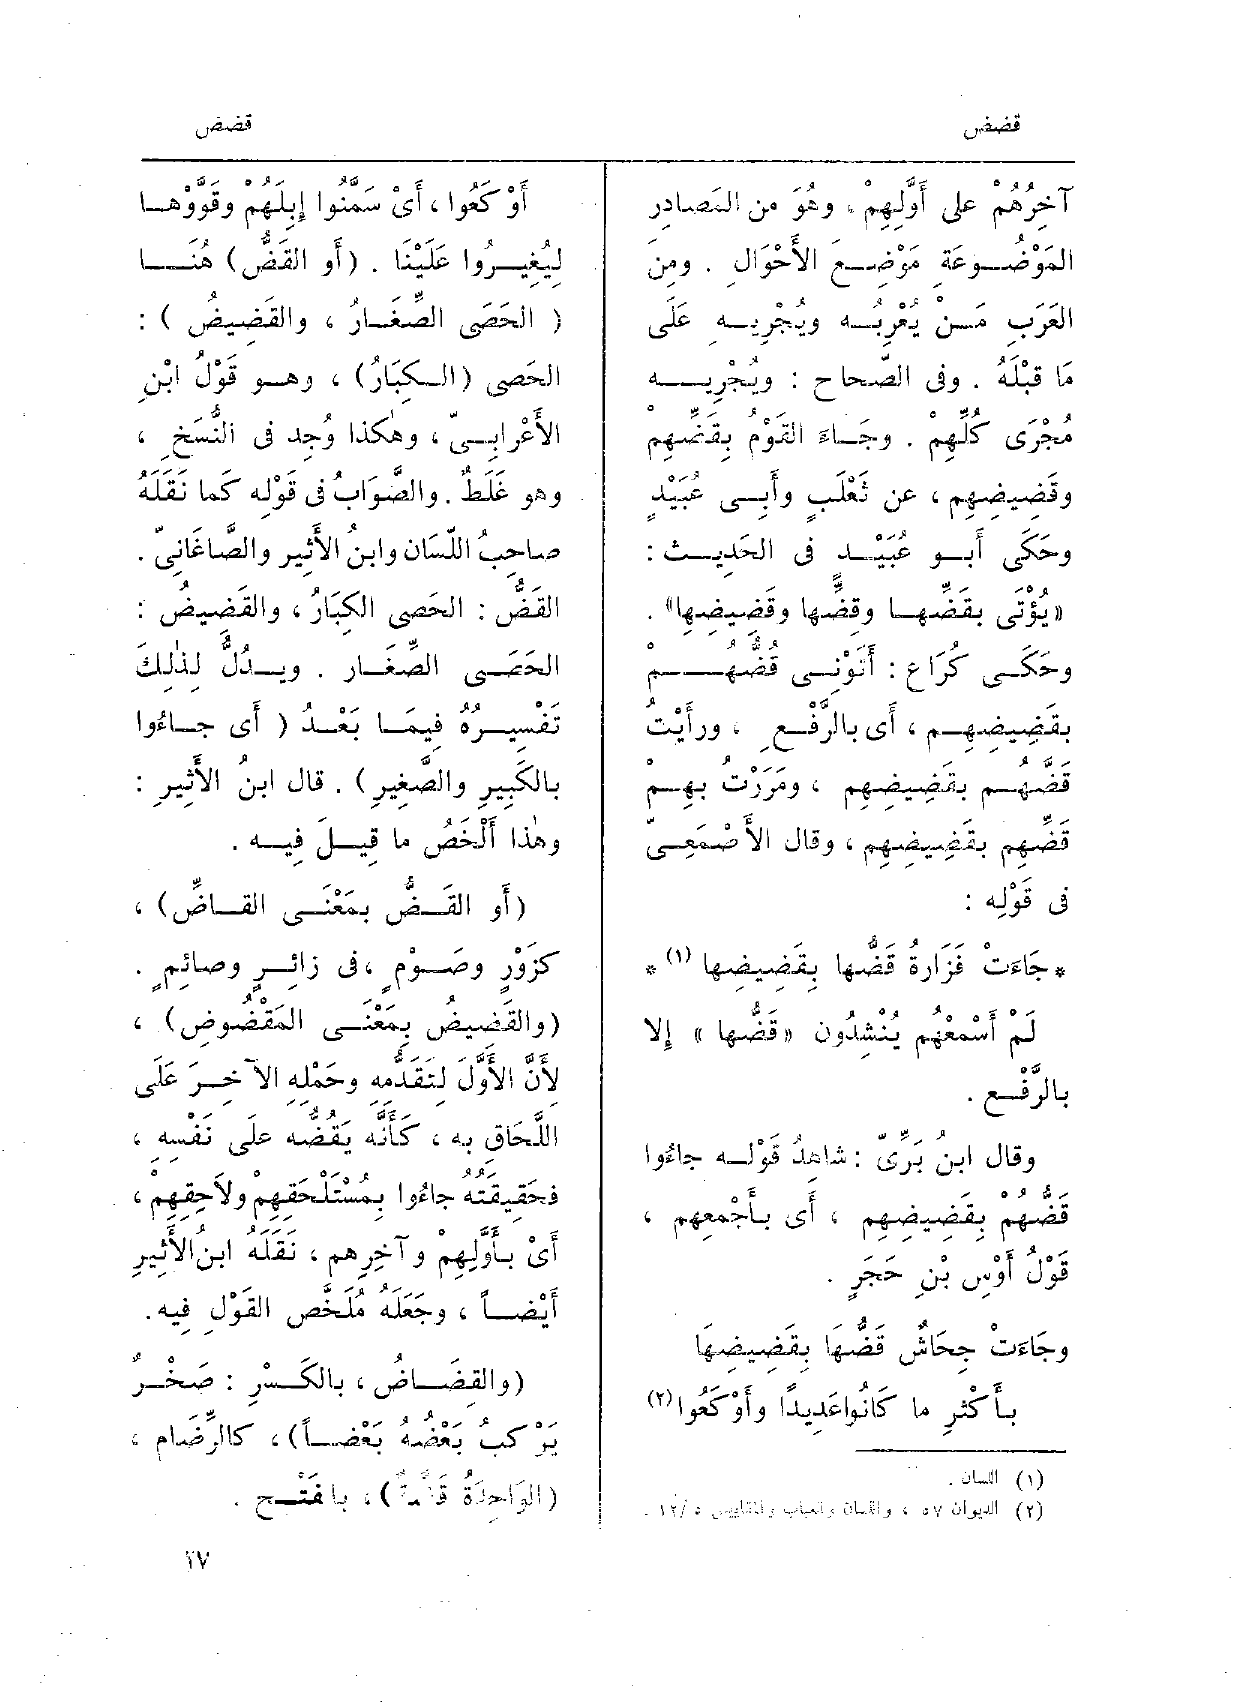 قضض
قضض
آخِرُهُمْ على أَوَّلِهِمْ ، وهُوَ من المَصادِرِ
المَوْضُوعَةِ مَوْضِعَ الأَحْوَالِ . ومِنَ
العَرَبِ مَنْ يُعْرِبُه ويُجْرِيهِ عَلَى
مَا قَبْلَهُ . وفى الصّحاح : ويُجْرِيه
مُجْرَى كُلِّهِمْ . وجَاءَ القَوْمُ بقَضِّهِمْ
وقَضِيضِهِم ، عن ثَعْلَبٍ وأَبِى عُبَيْدٍ
وحَكَى أَبو عُبَيْد فى الحَدِيث :
«يُؤْتَى بقَضِّها وقَضُّها وقَضِيضِها» .
وحَكَى كُرَاع : أَتَوْنِى قَضُّهُمْ
بقَضِيضِهم ، أَى بالرَّفْعِ ، ورأَيْتُ
قَضَّهُمْ بقَضِيضِهم ، ومَرَرْتُ بهِمْ
قَضِّهِم بقَضِيضِهم ، وقال الأَصْمَعِىّ
فى قَوْلِه :
* جَاءَتْ فَزَارةُ قَضُّها بقَضِيضِها (١) *
لَمْ أَسْمَعْهُم يُنْشِدُون «قَضُّها» إِلا
بالرَّفْع .
وقال ابنُ بَرِّىّ : شاهِدُ قَوْلِه جاءُوا
قَضُّهُمْ بِقَضِيضِهِم ، أَى بأَجْمعِهم ،
قَوْلُ أَوْسِ بْنِ حَجَرٍ .
وجَاءَتْ جِحَاشٌ قَضُّهَا بِقَضِيضِهَا
بأَكْثَرِ ما كَانُوا عَدِيدًا وأَوْكَعُوا (٢)
(١) اللسان .
(٢) الديوان ٥٧ ، واللسان والعباب والمقاييس ٥/ ١٢ .
أَوْكَعُوا ، أَىْ سَمَّنُوا إِبِلَهُمْ وقَوَّوْها
لِيُغِيرُوا عَلَيْنَا . (أَو القَضُّ) هُنَا
( الحَصَى الصِّغَارُ ، والقَضِيضُ ) :
الحَصى (الكِبَارُ) ، وهو قَوْلُ ابْنِ
الأَعْرابِىّ ، وهٰكَذا وُجِد فى النُّسَخِ ،
وهو غَلَطٌ . والصَّوَابُ فى قَوْلِه كما نَقَلَهُ
صاحِبُ اللّسَان وابنُ الأَثِيرِ والصَّاغَانِىّ .
القَضُّ : الحَصى الكِبَارُ ، والقَضِيضُ :
الحَصَى الصِّغَار . ويدُلُّ لِذٰلِكَ
تَفْسِيرُهُ فِيمَا بَعْدُ ( أَى جاءُوا
بالكَبِيرِ والصَّغِيرِ) . قال ابنُ الأَثِيرِ :
وهٰذا أَلْخَصُ ما قِيلَ فِيه .
(أَو القَضُّ بمَعْنَى القَاضِّ) ،
كزَوْرٍ وصَوْمٍ ، فى زائِرٍ وصائِمٍ .
(والقَضِيضُ بِمَعْنَى المَقْضُوضِ) ،
لأَنَّ الأَوَّلَ لِتَقَدُّمِهِ وحَمْلِهِ الآخِرَ عَلَى
اللَّحَاقِ بِه ، كَأَنَّه يَقُضُّه على نَفْسِهِ ،
فحَقِيقَتُه جاءُوا بِمُسْتَلْحَقِهِمْ ولاَحِقِهِمْ ،
أَىْ بأَوَّلِهِمْ وآخِرِهم ، نَقَلَهُ ابنُ الأَثِيرِ
أَيْضاً ، وجَعَلَهُ مُلَخَّصَ القَوْلِ فِيه .
(والقِضَاضُ ، بالكَسْرِ : صَخْرٌ
يَرْكَبُ بَعْضُهُ بَعْضاً) ، كالرِّضَام ،
(الوَاحِدَةُ قَضَّةٌ) ، بالفَتْح .
٢٧